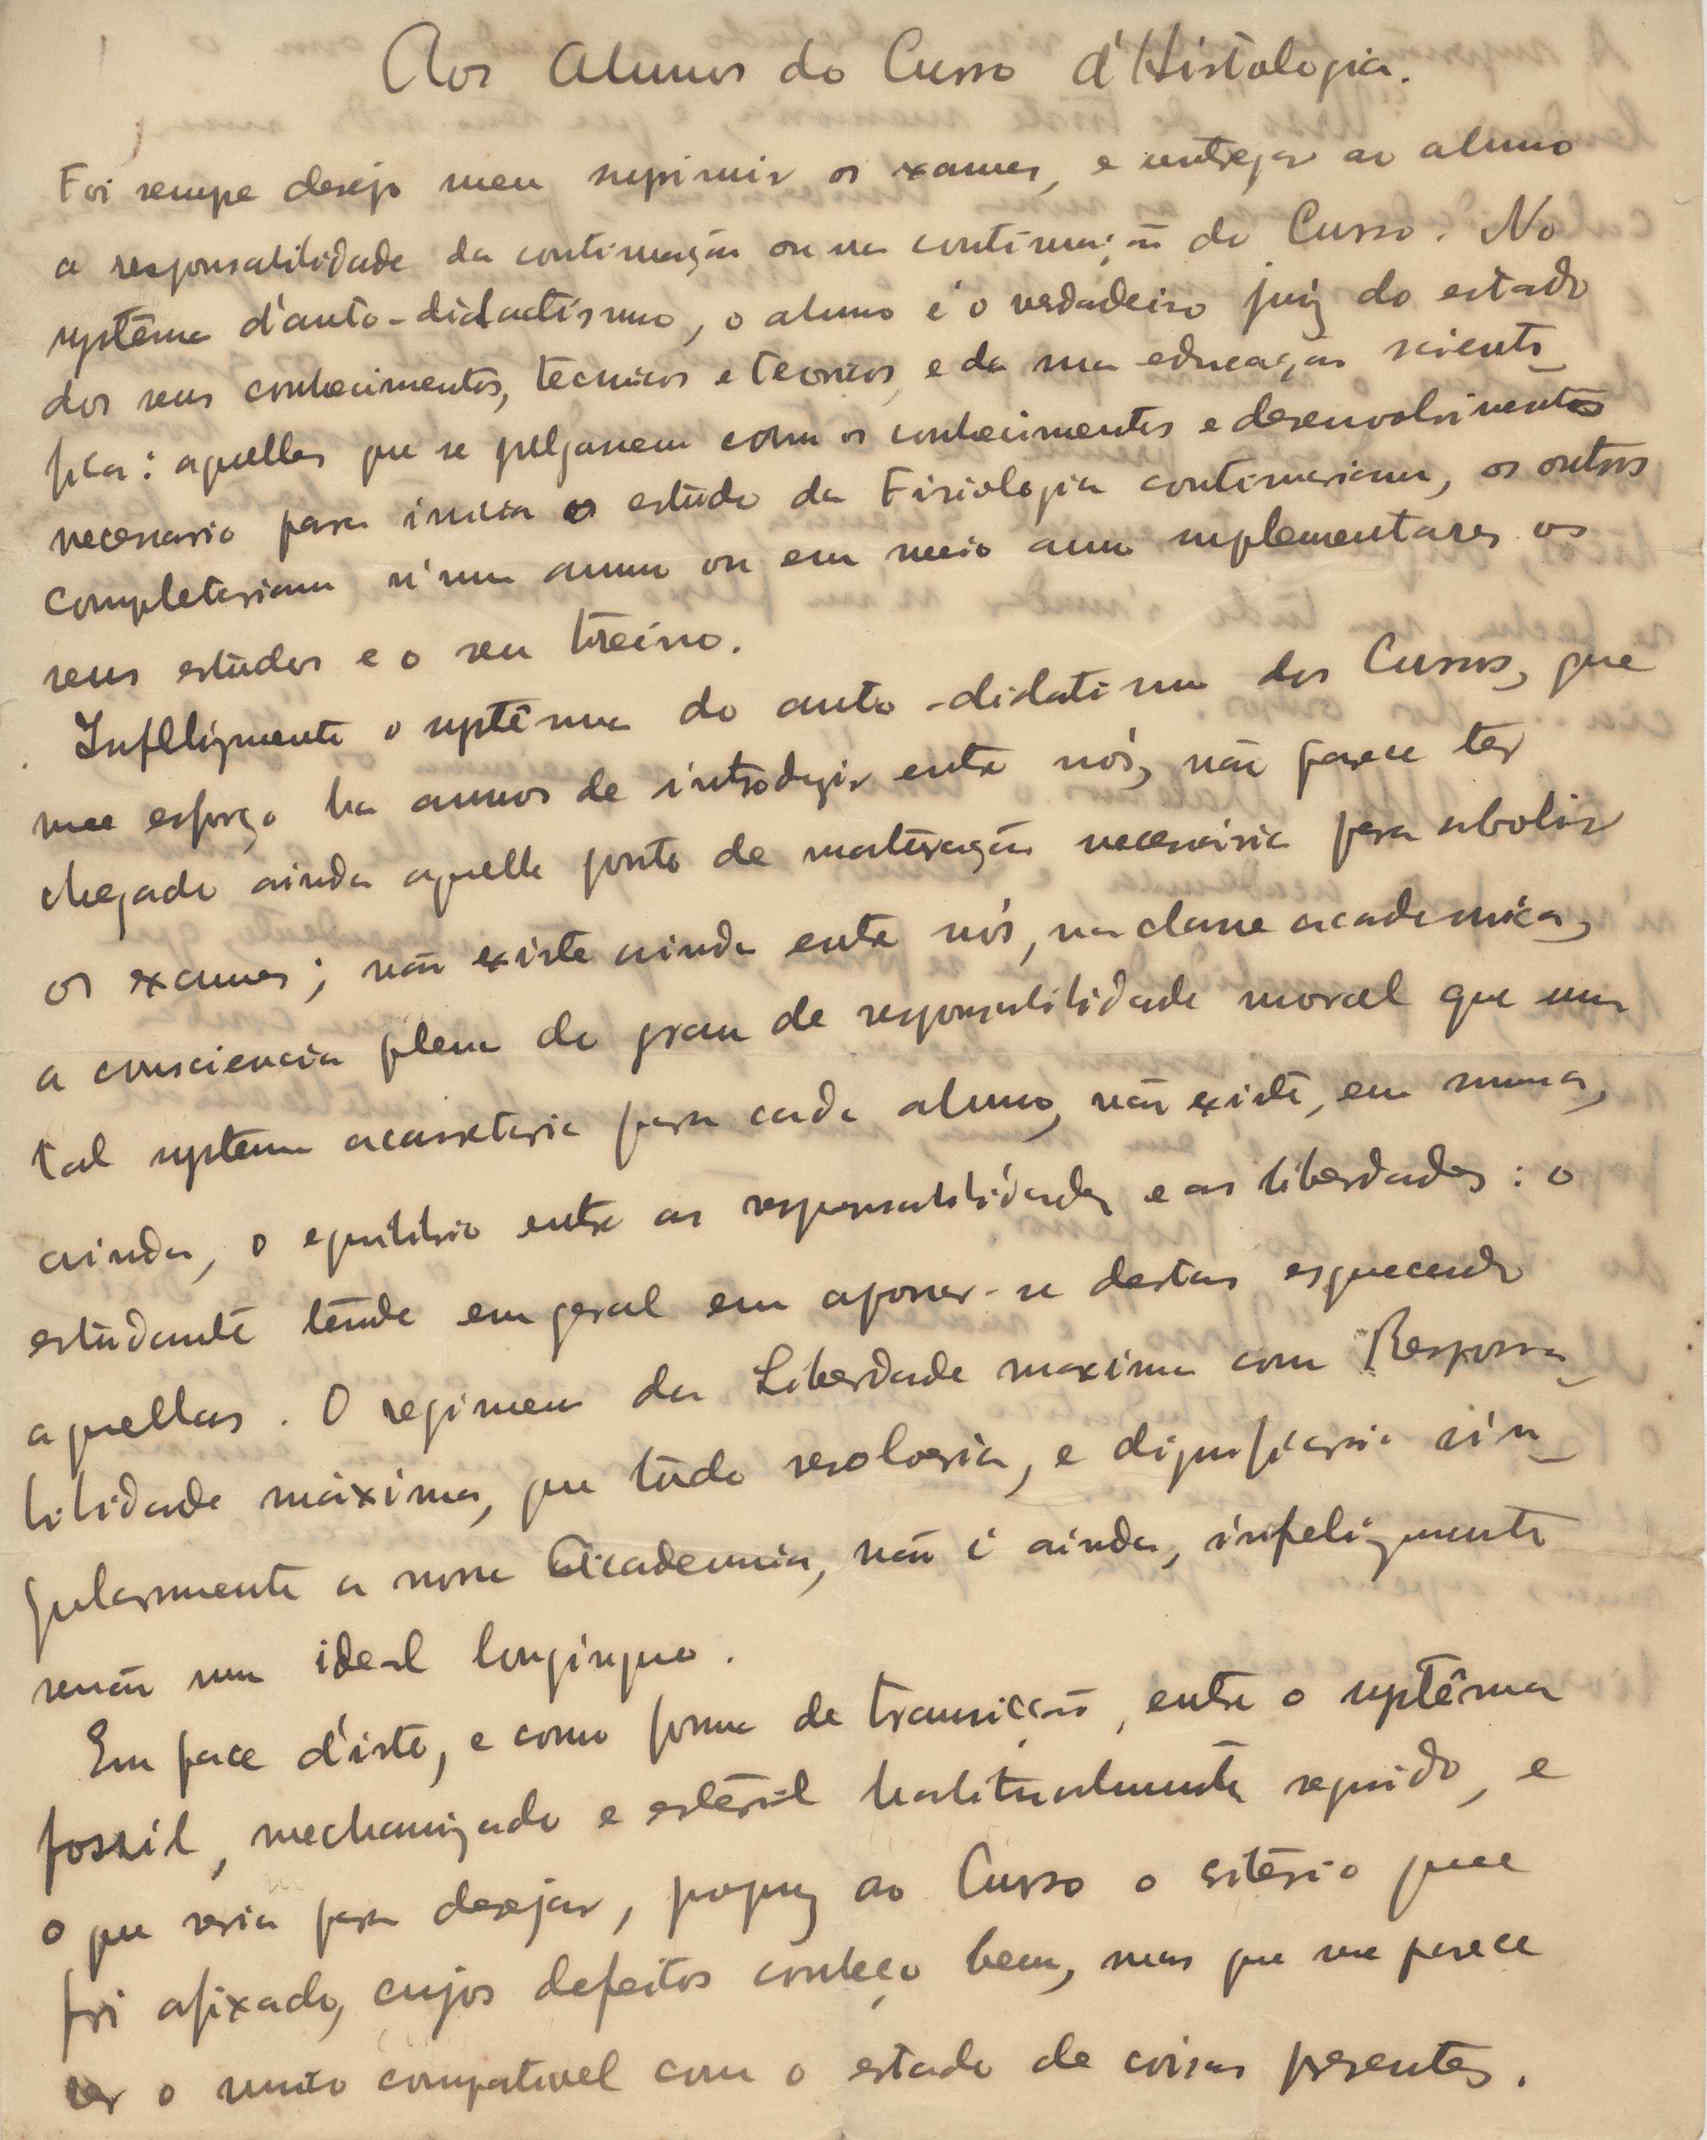 Aos Alunos do Curso d'Histologia.
Foi sempre desejo meu suprimir os exames, e entregar ao aluno
a responsabilidade da continuação ou na continuação do Curso. No
systêma d'auto-didactismo, o aluno é o verdadeiro juiz do estado
dos seus conhecimentos, tecnicos e teoricos, e da sua educação scienti_
fica: aquelles que se julgassem com os conhecimentos e desenvolvimentos
necessario para iniciar o estudo da Fisiologia continuariam, os outros
completariam n'um anno ou em meio anno suplementares os
seus estudos e o seu treino.
Infelizmente o systêma do auto-didatismo dos Cursos, que
me esforço ha annos de introduzir entre nós, não parece ter
chegado ainda aquelle ponto de maturação necessária para abolir
os exames; não existe ainda entre nós, na classe academica,
a consciencia plena do grau de responsabilidade moral que um
tal systema acarretaria para cada aluno, não existe, em summa,
ainda, o equilibrio entre as responsabilidades e as liberdades: o
estudante tende em geral em apossar-se destas esquecendo
aquellas. O regimen da Liberdade maxima com Responsa_
bilidade máxima, que tudo resolveria, e dignificaria sin_
gularmente a nossa Academia, não é ainda, infelizmente
senão um ideal longinquo.
Em face d'isto, e como forma de transicção, entre o systêma
fossil, mechanizado e estéril habitualmente seguido, e
o que seria para desejar, propuz ao Curso o critério que
foi afixado, cujos defeitos conheço bem, mas que me parece
ser o unico compativel com o estado de coisas presentes.